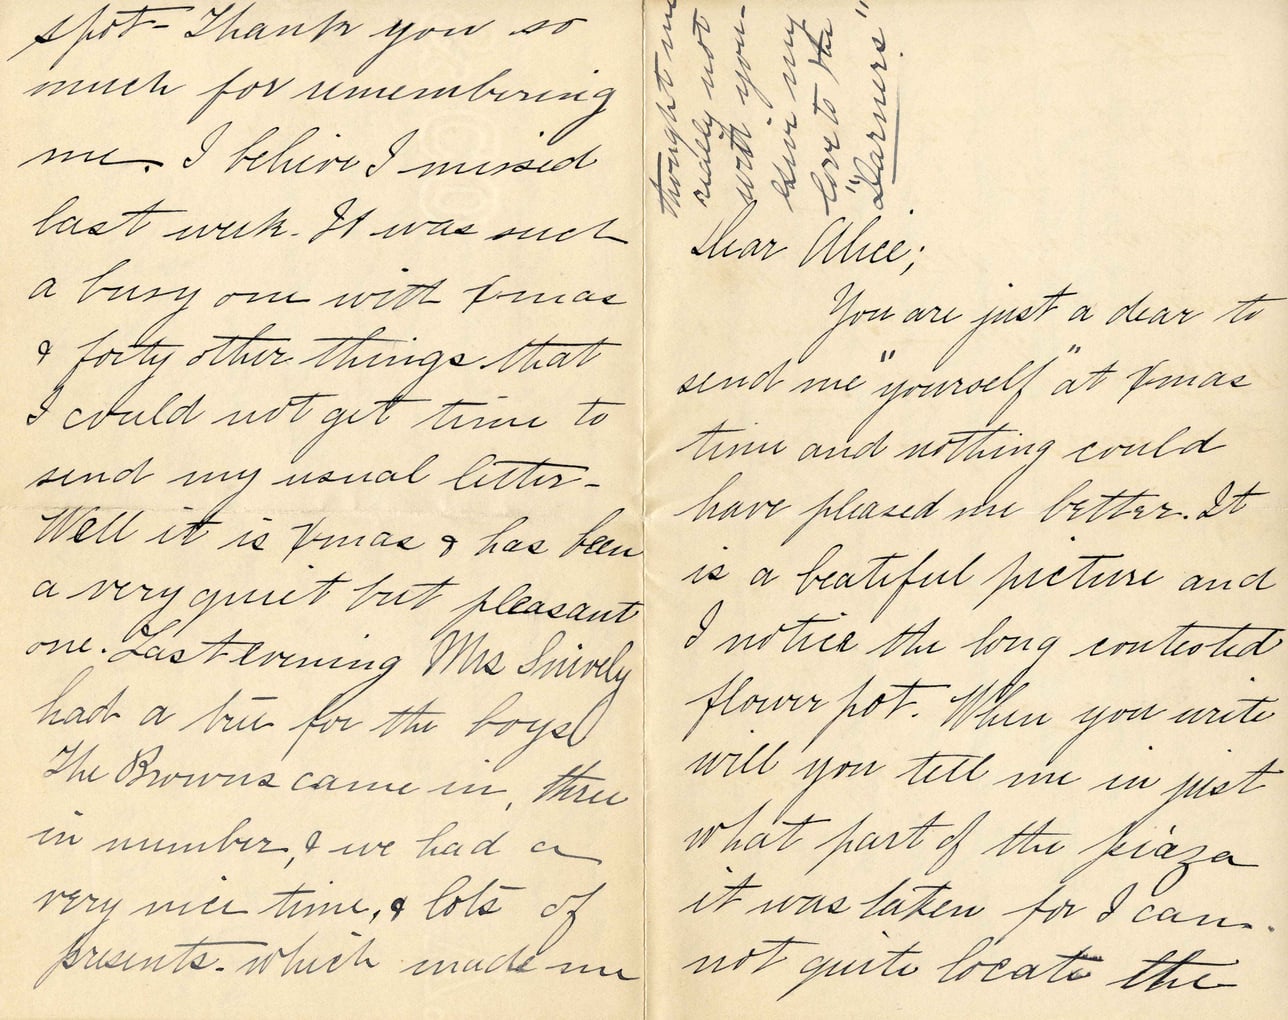 Dear Alice;
You are just a dear to
send me "yourself" at Xmas
time and nothing could
have pleased me better. It
is a beatiful picture and
I notice the long contested
flower pot. When you write
will you tell me in just
what part of the piaza
it was taken for I can
not quite locate the
spot- Thank you so
much for remembering
me. I believe I missed
last week. It was such
a busy one with Xmas
& forty other things that
I could not get time to
send my usual letter-
Well it is Xmas & has been
a very quiet but pleasant
one. Last evening Mrs Snively
had a tree for the boys
The Browns came in, three
in number, & we had a
very nice time, & lots of
presents- which made me
thought me
really not
with you-
Give my
love to the